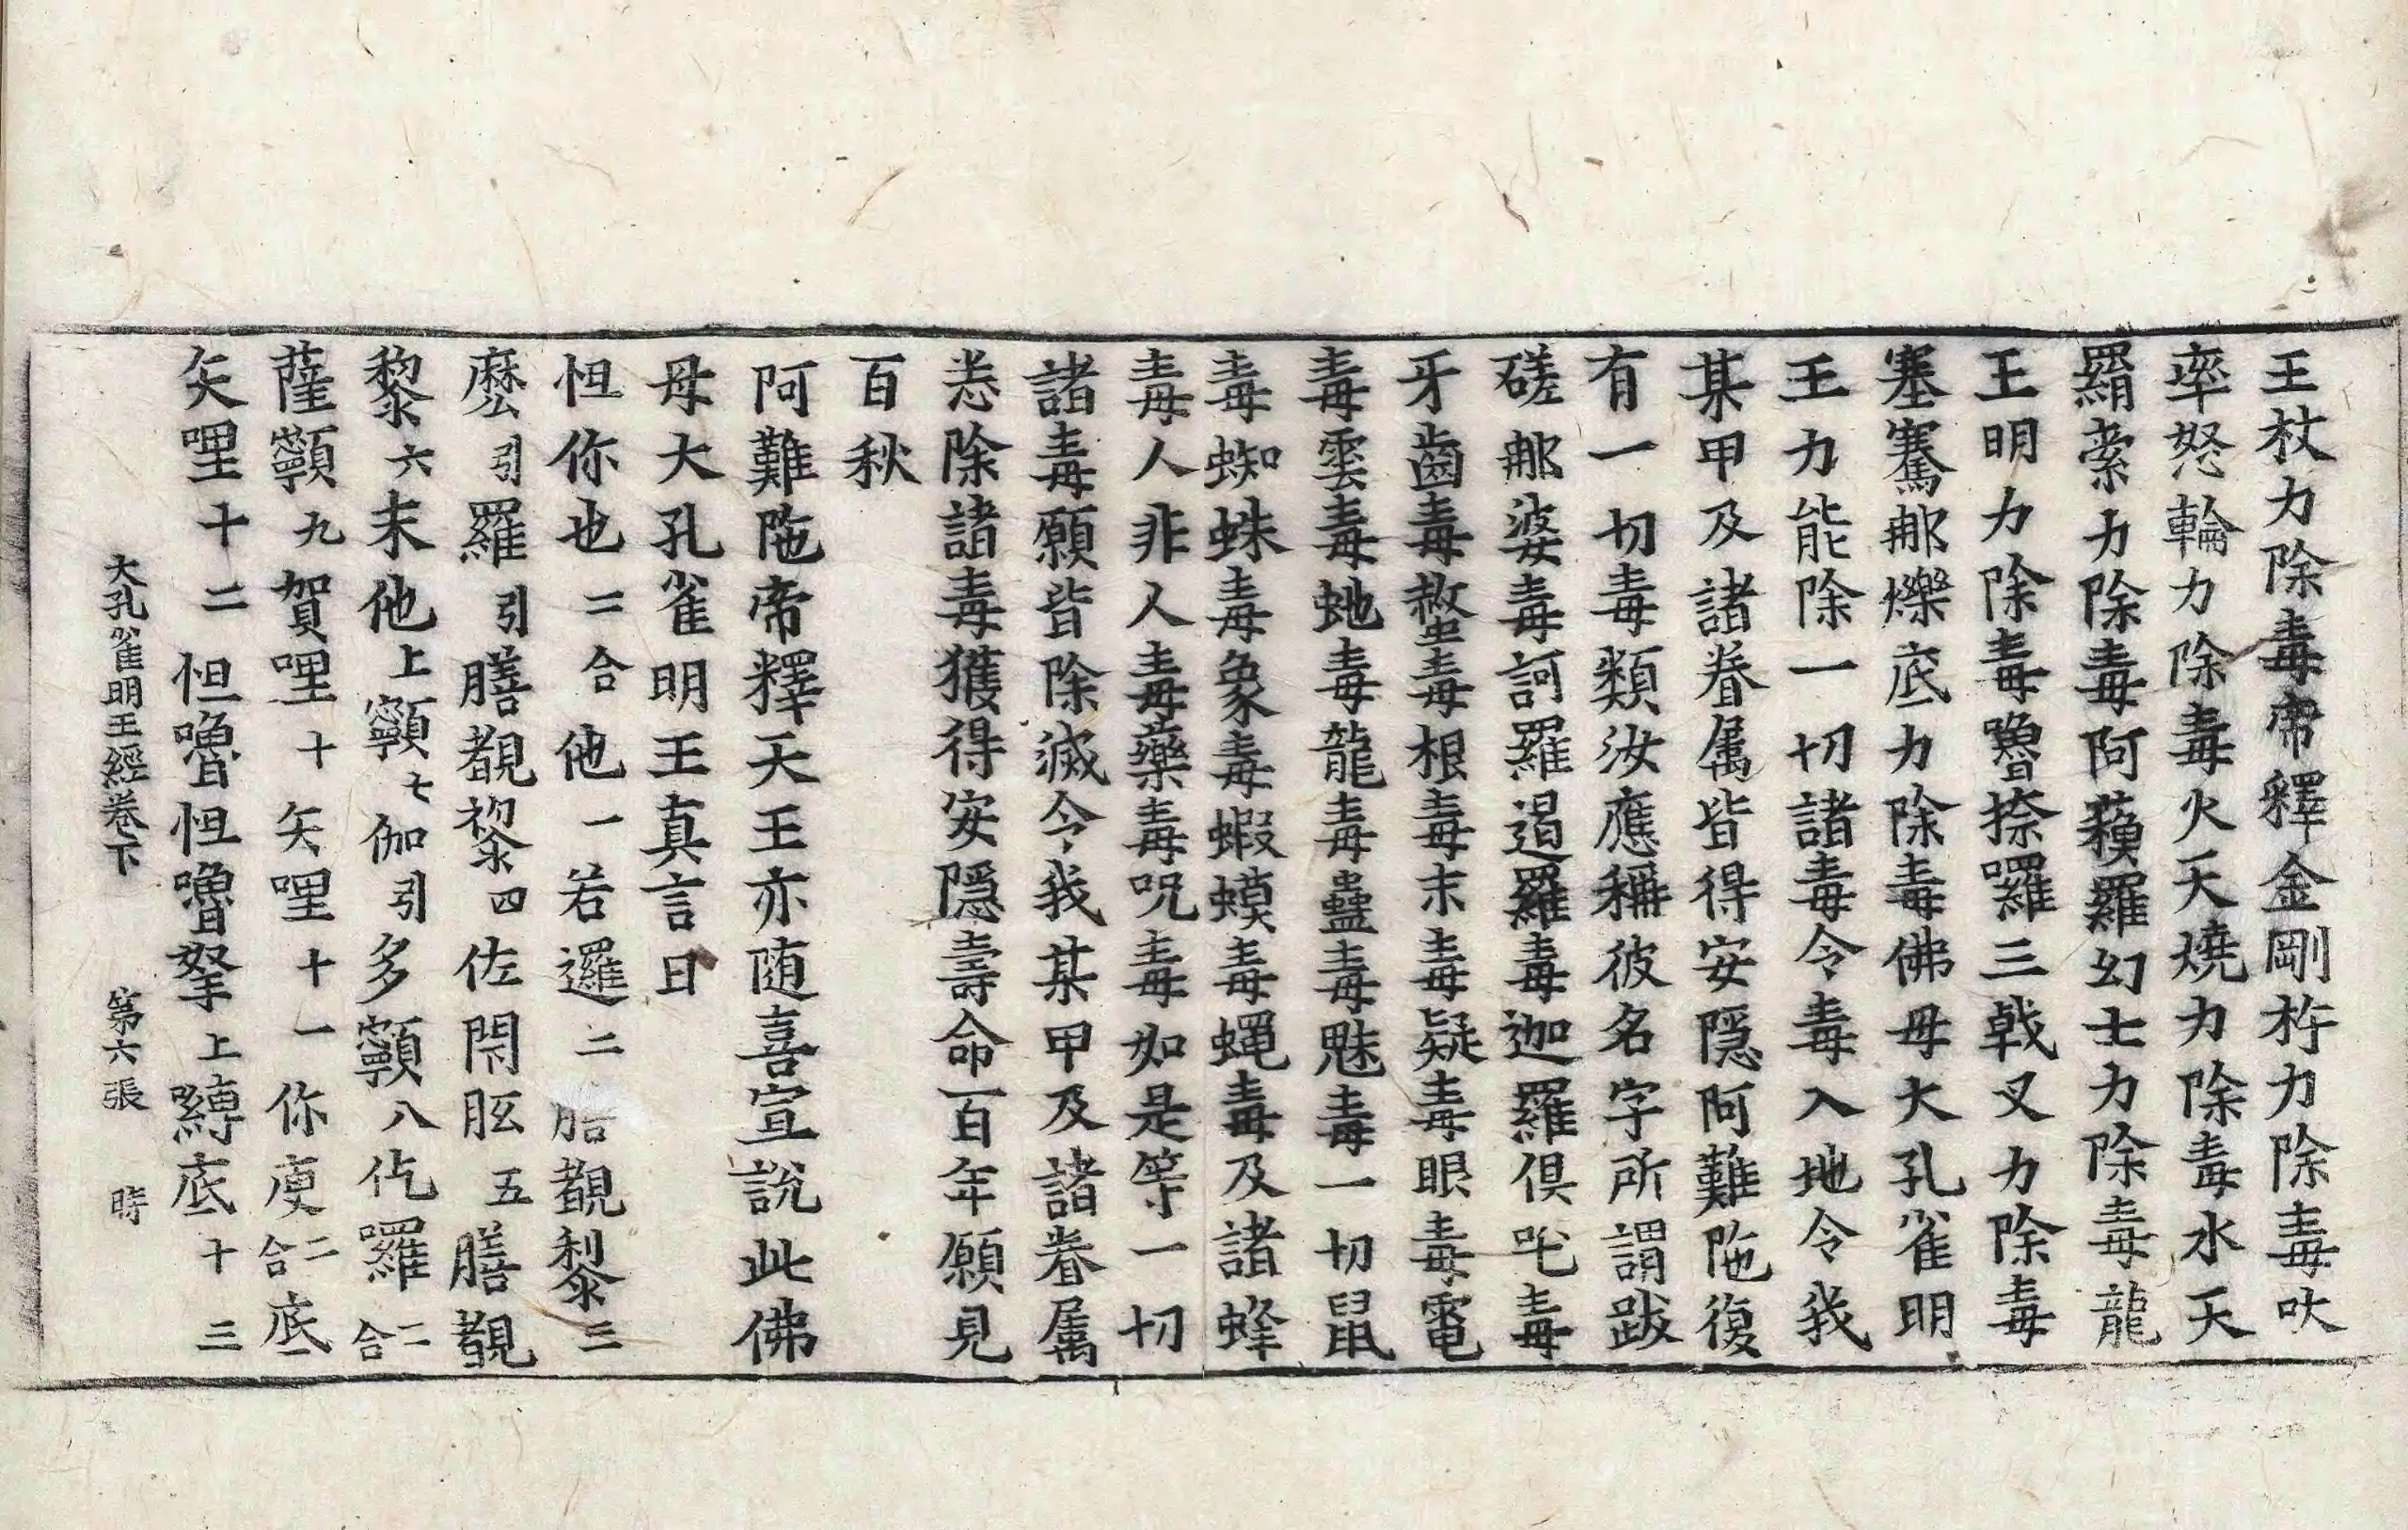 王杖力除毒帝釋金剛杵力除毒吠
率怒輪力除毒火天燒力除毒水天
羂索力除毒阿蘓羅幻士力除毒龍
王明力除毒嚕捺囉三戟叉力除毒
塞騫那爍底力除毒佛母大孔雀明
王力能除一切諸毒令毒入地令我
某甲及諸眷属皆得安隱阿難陁復
有一切毒類汝應稱彼名字所謂跋
磋那婆毒訶羅遏羅毒迦羅俱吒毒
牙齒毒螫毒根毒末毒疑毒眼毒電
毒雲毒虵毒龍毒蠱毒魅毒一切鼠
毒蜘蛛毒象毒蝦蟆毒蠅毒及諸蜂
毒人非人毒藥毒呪毒如是等一切
諸毒願皆除滅令我某甲及諸眷属
悉除諸毒獲得安隱壽命百年願見
百秋
阿難陁帝釋天王亦随喜宣說此佛
母大孔雀明王真言曰
怛你也二合他一若邏二膳覩黎三
麽引羅引膳覩黎四佐閇胘五膳覩
黎六末他上顐七伽引多顐八仡囉二合
薩顐九賀哩十矢哩十一你庾二合底
矢哩十二怛嚕怛嚕拏上嚩底十三
大孔雀明王經卷下 第六張 時